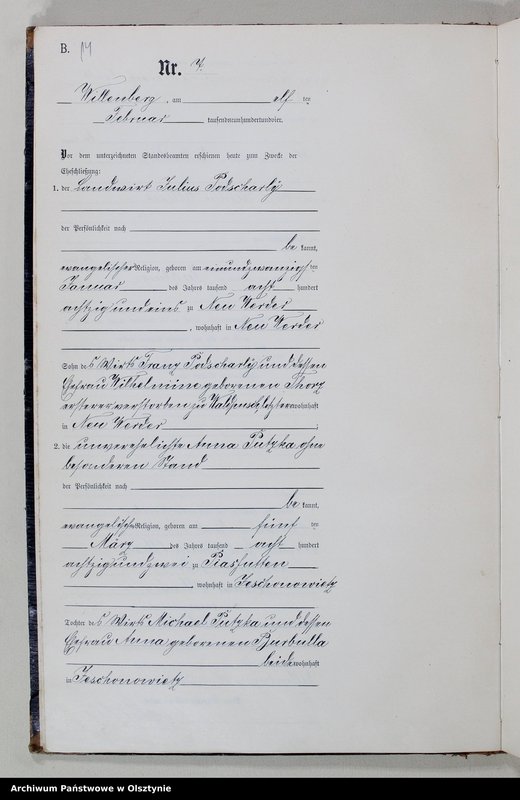 B. 14
Nr. 7.
Willenberg, am elf ten
Februar tausendneunhundertundvier.
Vor dem unterzeichneten Standesbeamten erschienen heute zum Zwecke der
Eheschließung:
1. der Landwirt Julius Podscharly
der Persönlichkeit nach
be kannt,
evangelischer Religion, geboren am neunundzwanzigsten
Januar des Jahres tausend acht hundert
achtzigundeins zu Neu Werder
, wohnhaft in Neu Werder
Sohn des Wirts Franz Podscharly und dessen
Ehefrau Wilhelmine geborenen
ersterer verstorben zu letztere wohnhaft
in Neu Werder ;
2. die unverehelichte Anna Putzka ohne
besonderen Stand
der Persönlichkeit nach
be kannt,
evangelischer Religion, geboren am fünf ten
März des Jahres tausend acht hundert
achtzigundzwei zu Piasutten
, wohnhaft in Jeschonowietz
Tochter des Wirts Michael Putzka und dessen
Ehefrau Anna geborenen Burbulla
beide wohnhaft
in Jeschonowietz
Archiwum Państwowe w Olsztynie